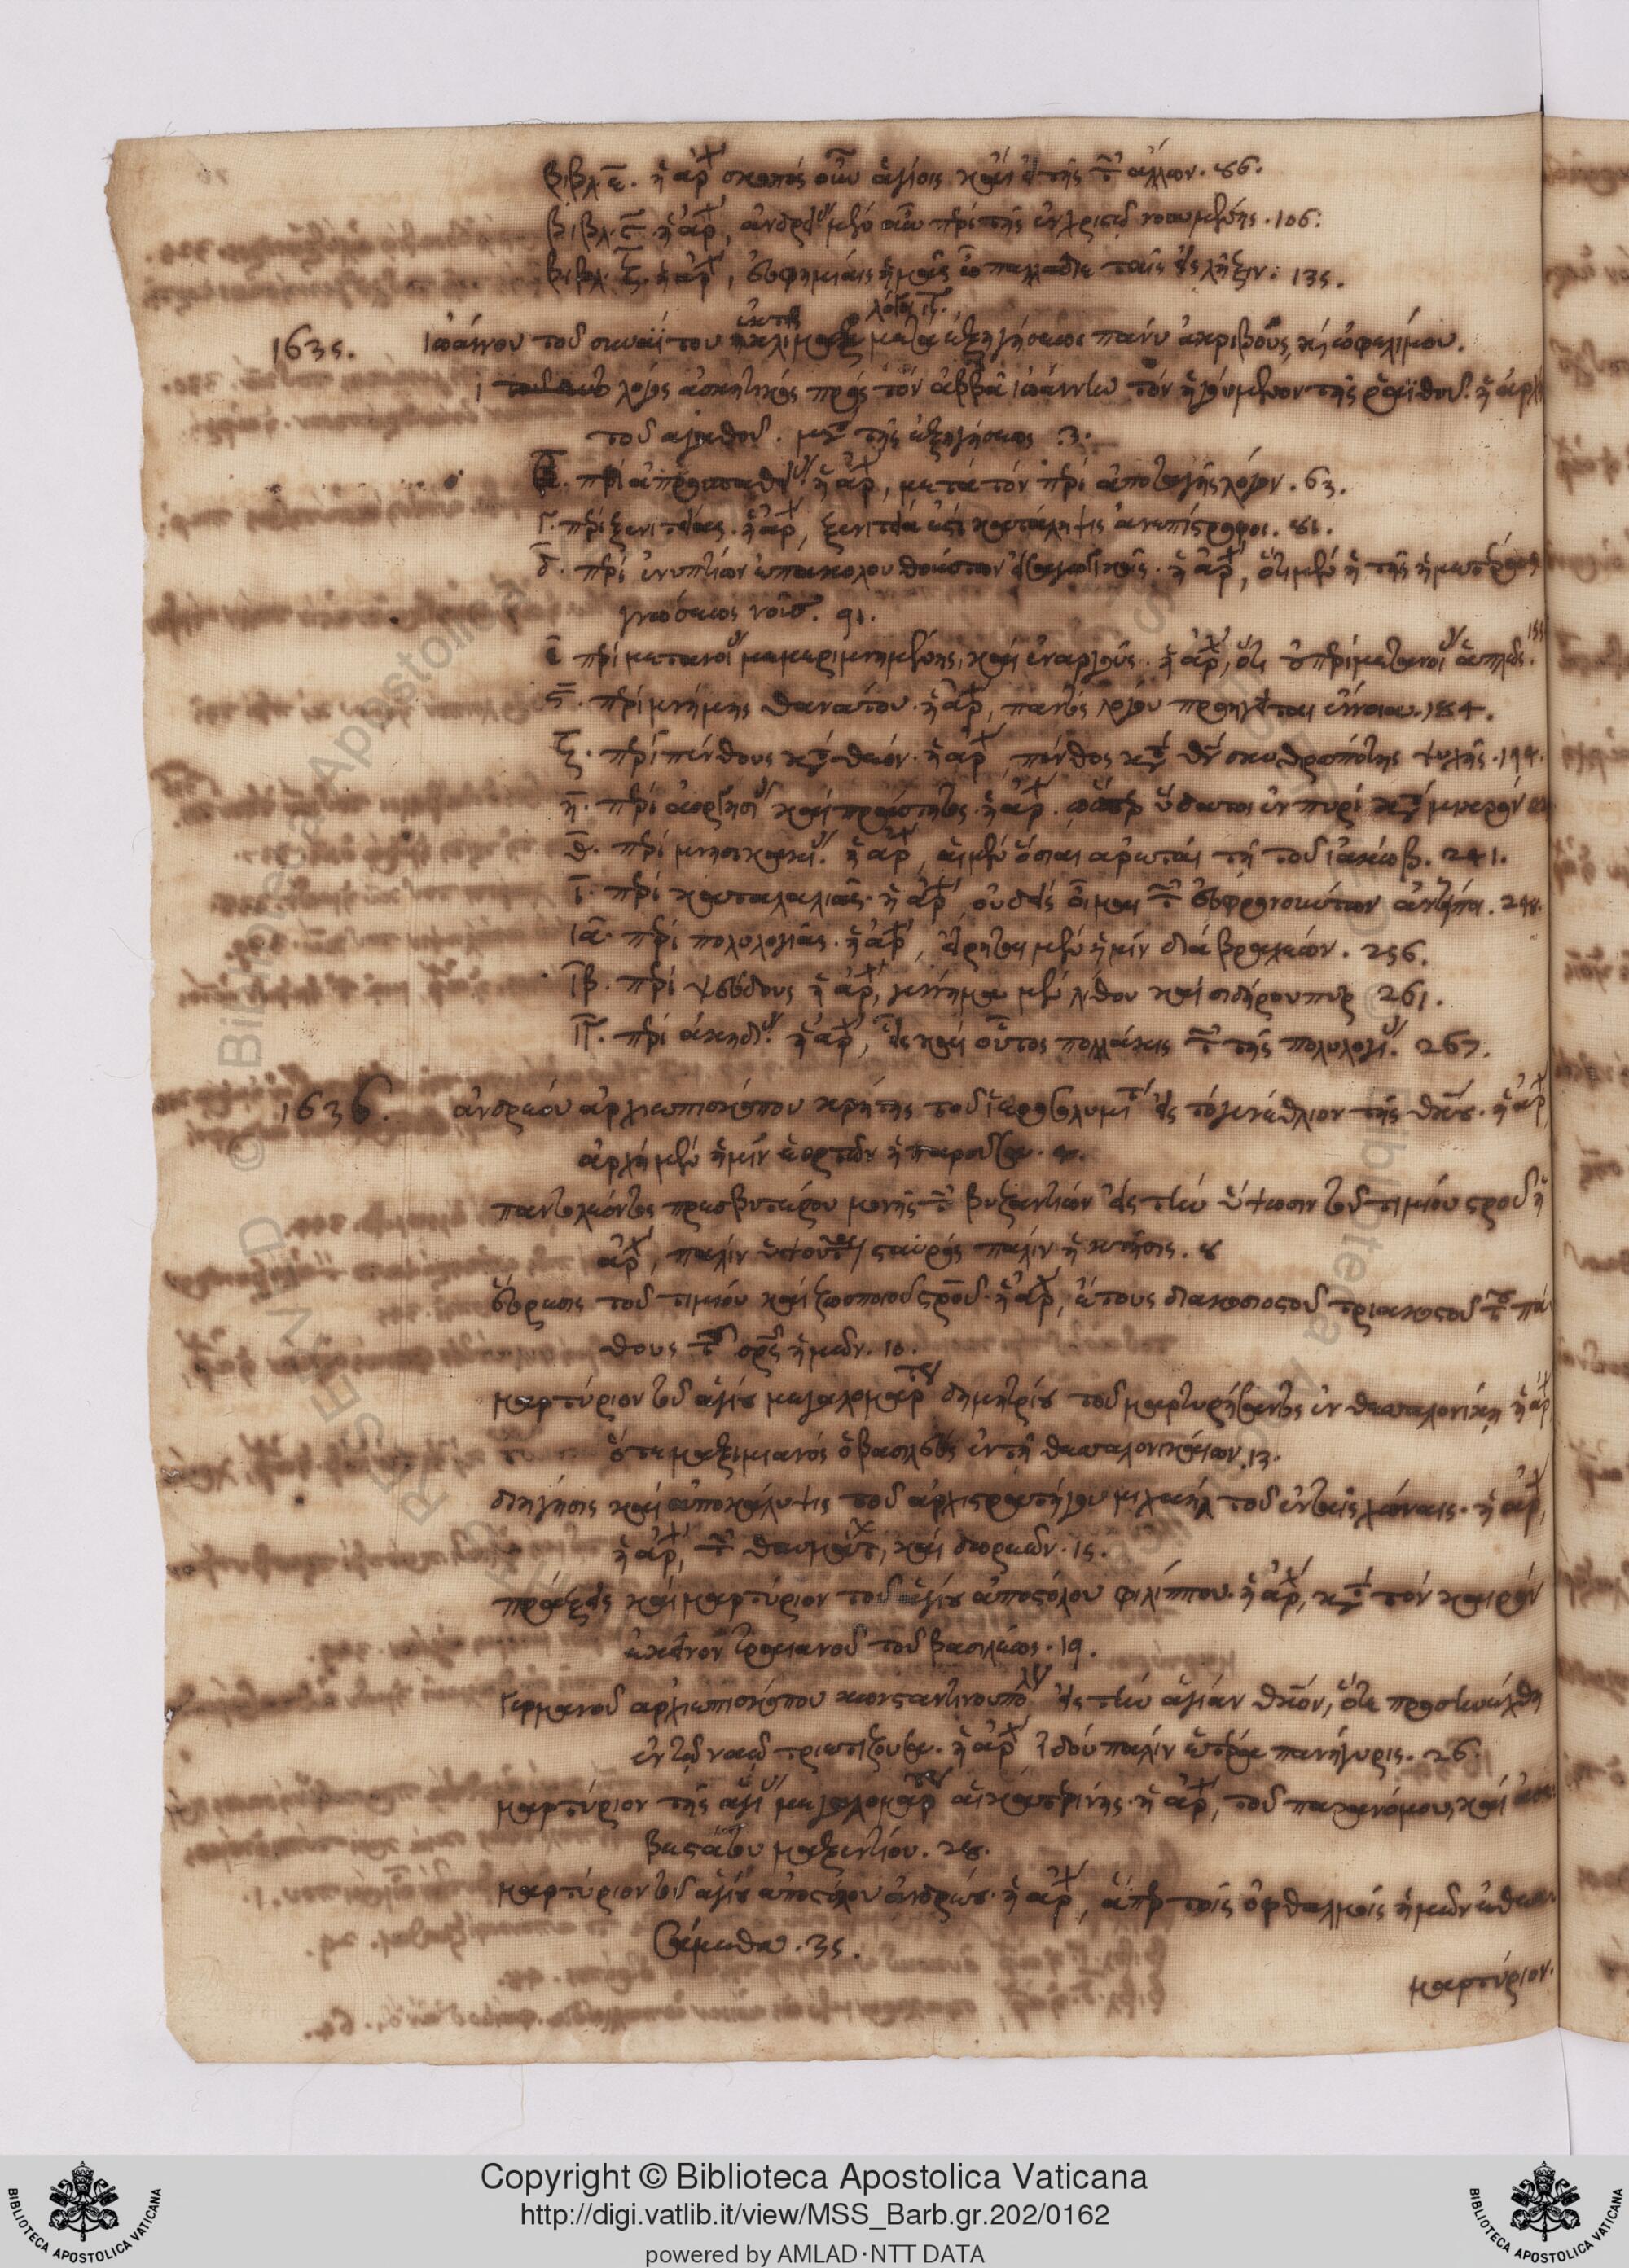 βιβλ. ε̅. ἡ ἀρχ σκοπὸς οὖν ἁγίοις καὶ τῆς τ ἄλλων. 86.
βιβλ. ϛ̅. ἡ ἀρχ, μὲν οὖν περὶ τῆς ἐν χριστῷ νοουμένης. 106.
βιβλ. ζ̅. ἡ ἀρχ, εὐφημίαις ἡμᾶς ὦ παλλάδιε ταῖς εἰς λῆξιν. 135.
λόγοι
1635. Ἰωάννου τοῦ σιναΐτου κλίμαξ μετὰ ἐξηγήσεως πάνυ ἀκριβοῦς, κὴ ὠφελίμου.
λόγος ἀσκητικὸς πρὸς τὸν ἀββᾶ ἰωάννην τὸν ἡγούμενον τῆς ῥαϊθοῦ. ἡ ἀρχὴ
τοῦ ἀγαθοῦ. τῆς ἐξηγήσεως 3.
περὶ ἀπροσπαθ ἡ ἀρχ, μετὰ τὸν περὶ ἀποταγῆς λόγον. 63.
Γ. περὶ ξενιτείας. ἡ ἀρχ, ξενιτεία ἐστὶ κατάληψις ἀνεπίστροφοι. 81.
δ̅. περὶ ἐνυπνίων ἐπακολουθούντων εἰσαγωγικοῖς. ἡ ἀρχ, ὅτι μὲν ἡ τῆς ἡμετέρας
γνώσεως νοῦς. 91.
ε̅ περὶ μετανοί μεμεριμνημένης, καὶ ἐναργοῦς. ἡ ἀρχ, ὅτι ὁ περὶ μετανοί 155
ϛ̅. περὶ μνήμης θανάτου. ἡ ἀρχ, παντὸς λόγου προηγεῖται ἔννοια. 184.
ζ̅. περὶ πένθους κτ θεόν. ἡ ἀρχ, πένθος κτ θν σκυθρωπότης ψυχῆς. 194.
η̅. περὶ ἀοργησί καὶ πραότητος. ἡ ἀρχ. ὥσπερ ὕδατος ἐν πυρὶ κτ μικρὸν
θ̅. περὶ μνησικακί. ἡ ἀρχ, αἱ μὲν ὅσιαι ἀρεταὶ τῇ τοῦ ἰακώβ. 241.
ι̅. περὶ καταλαλιᾶς. ἡ ἀρχ, οὐδεὶς οἶμαι τ εὖ φρονούντων ἀντείποι. 248.
ια̅. περὶ πολυλογίας. ἡ ἀρχ, εἴρηται μὲν ἡμῖν διὰ βραχέων. 256.
ιβ. περὶ ψεύδους ἡ ἀρχ, γέννημα μὲν λίθου καὶ σιδήρου πῦρ 261.
ιγ. περὶ ἀκηδί. ἡ ἀρχ, εἷς καὶ οὗτος πολλάκις τ τῆς πολυλογί. 267.
1636. ἀνδρέου ἀρχιεπισκόπου κρήτης τοῦ ἱεροσολυμίτ εἰς τὸ γενέθλιον τῆς θκου. ἡ ἀρχ
ἀρχὴ μὲν ἡμῖν ἑορτῶν ἡ παροῦσα.
παντολέοντος πρεσβυτέρου μονῆς τ βυζαντίων εἰς τὴν ὕψωσιν τοῦ τιμίου στροῦ ἡ
ἀρχ, πάλιν ὑψοῦται σταυρὸς πάλιν ἡ κτῆσις. 8
εὕρεσις τοῦ τιμίου καὶ ζωοποιοῦ στροῦ. ἡ ἀρχ, ἔτους διακοσιοστοῦ τριακοστοῦ τ πά
θους τ ἡμῶν. 10.
μαρτύριον τοῦ ἁγίου μεγαλομάρτυ δημητρίου τοῦ μαρτυρήσαντος ἐν θεσσαλονίκῃ ἡ ἀρχ
ὅτε μαξιμιανὸς ὁ βασιλεὺς ἐν τῇ θεσσαλονικέων. 13.
διήγησις καὶ ἀποκάλυψις τοῦ ἀρχιστρατήγου μιχαὴλ τοῦ ἐν ταῖς χώναις. ἡ ἀρχ,
ἡ ἀρχ, τ θαυμάτ, καὶ δωρεῶν. 15.
πράξεις καὶ μαρτύριον τοῦ ἁγίου ἀποστόλου φιλίππου. ἡ ἀρχ, κτ τὸν καιρὸν
ἐκεῖνον τραϊανοῦ τοῦ βασιλέως. 19.
Γερμανοῦ ἀρχιεπισκόπου κωνσταντινουπόλ εἰς τὴν ἁγίαν θκον, ὅτε προσηνέχθη
ἐν τῷ ναῷ τριετίζουσα. ἡ ἀρχ ἰδοὺ πάλιν ἑτέρα πανήγυρις. 26.
μαρτύριον τῆς ἁγί μεγαλομάρ αἰκατερίνης. ἡ ἀρχ, τοῦ παρανόμου, καὶ ἀσε
βεστάτου μαξεντίου. 28.
μαρτύριον τοῦ ἁγίου ἀποστόλου ἀνδρέου. ἡ ἀρχ, ἅπερ τοῖς ὀφθαλμοῖς ἡμῶν ἐθεα
σάμεθα. 35.
μαρτύριον.
Copyright © Biblioteca Apostolica Vaticana
http://digi.vatlib.it/view/MSS_Barb.gr.202/0162
powered by AMLAD·NTT DATA
BIBLIOTECA APOSTOLICA VATICANA
BIBLIOTECA APOSTOLICA VATICANA